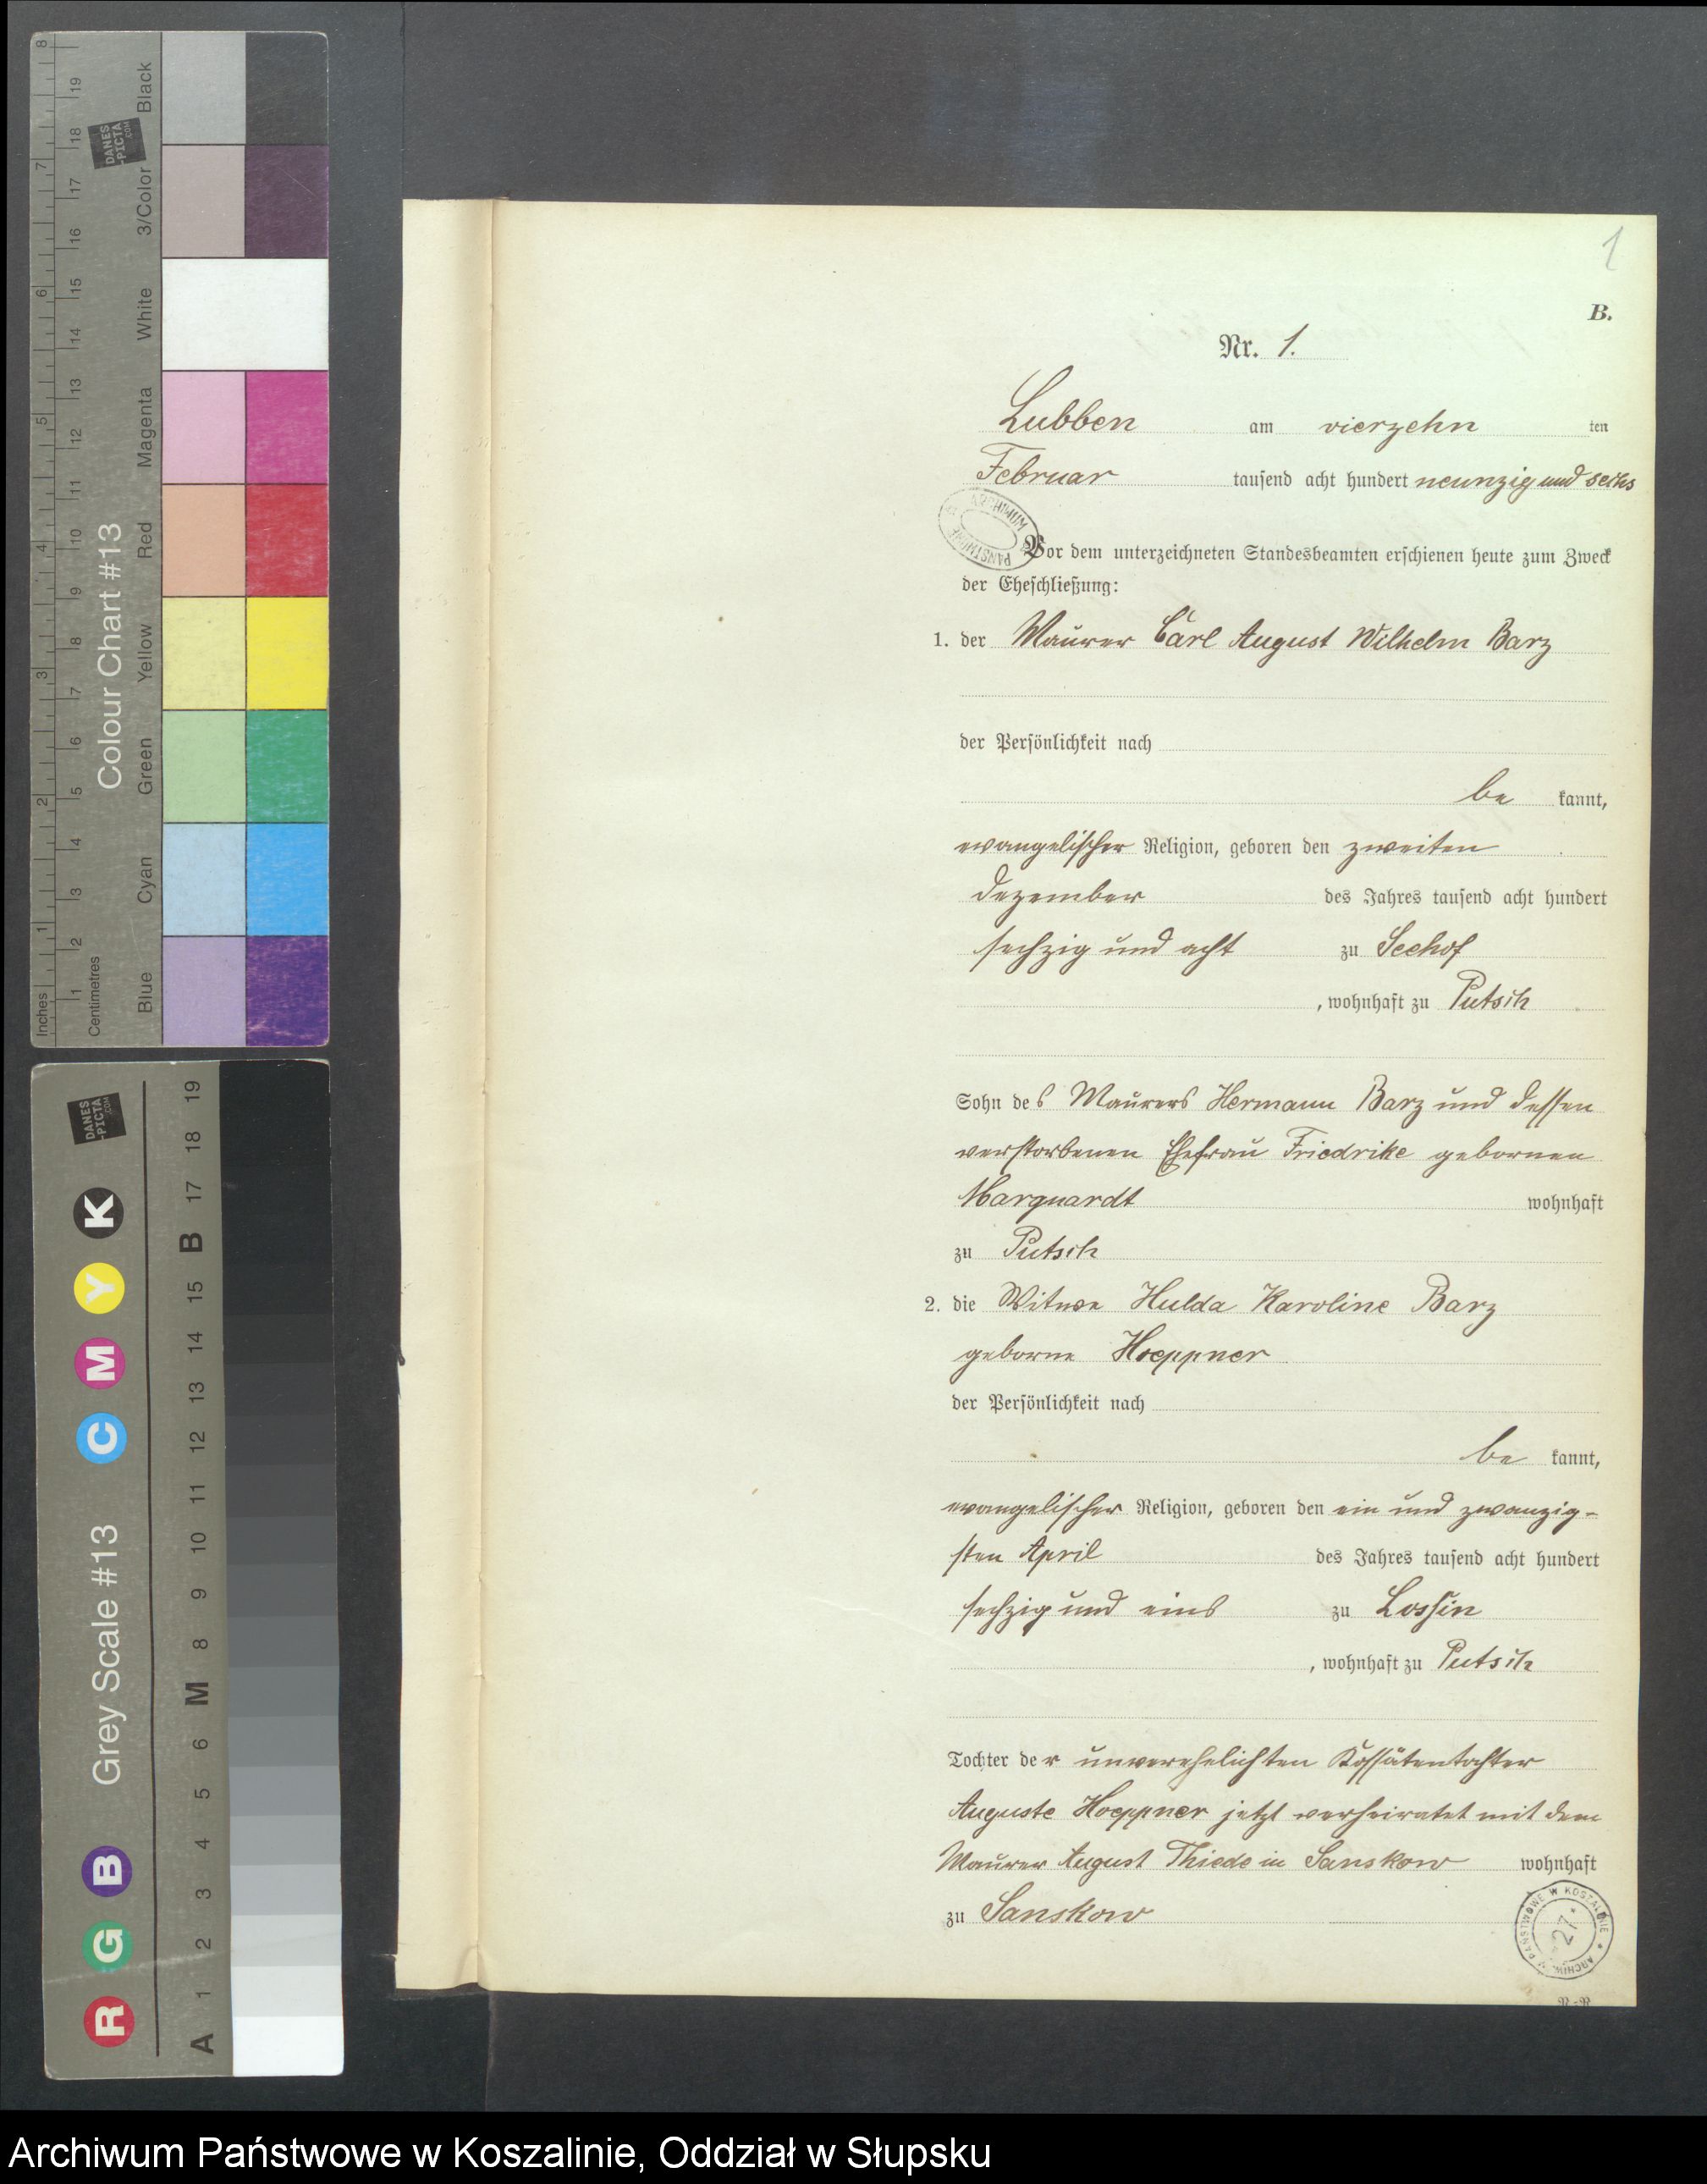 8
19
Black
DANES
-PICTA
.COM
18
7
17
3/Color
16
6
15
White
14
13
5
Magenta
12
11
Colour Chart #13
10
Red
4
9
8
Yellow
3
7
6
Green
2
5
4
Cyan
3
1
2
Centimetres
Inches
1
Blue
DANES
-PICTA
.COM
19
18
17
K
B
15
Y
14
M
13
12
C
11
10
Grey Scale #13
9
8
M
6
5
4
B
3
G
2
1
R
A
1
B.
Nr. 1.
Lubben am vierzehn ten
Februar tausend acht hundert neunzig und sechs
ARCHIWUM PAŃSTWOWE
Vor dem unterzeichneten Standesbeamten erschienen heute zum Zweck
der Eheschließung:
1. der Maurer Carl August Wilhelm Barz
der Persönlichkeit nach
be kannt,
evangelischer Religion, geboren den zweiten
Dezember des Jahres tausend acht hundert
sechzig und acht zu Seehof
, wohnhaft zu Putsch
Sohn des Maurers Hermann Barz und dessen
verstorbenen Ehefrau Friedrike gebornen
Marquardt wohnhaft
zu Putsch
2. die Witwe Hulda Karoline Barz
geborne Hoeppner
der Persönlichkeit nach
be kannt,
evangelischer Religion, geboren den ein und zwanzig-
sten April des Jahres tausend acht hundert
sechzig und eins zu Lossin
, wohnhaft zu Putsch
Tochter der unverehelichten Kossätentochter
Auguste Hoeppner jetzt verheiratet mit dem
Maurer August Thiede in Sanskow wohnhaft
zu Sanskow
PAŃSTWOWE W KOSZALINIE * ARCHIWUM
27
Archiwum Państwowe w Koszalinie, Oddział w Słupsku